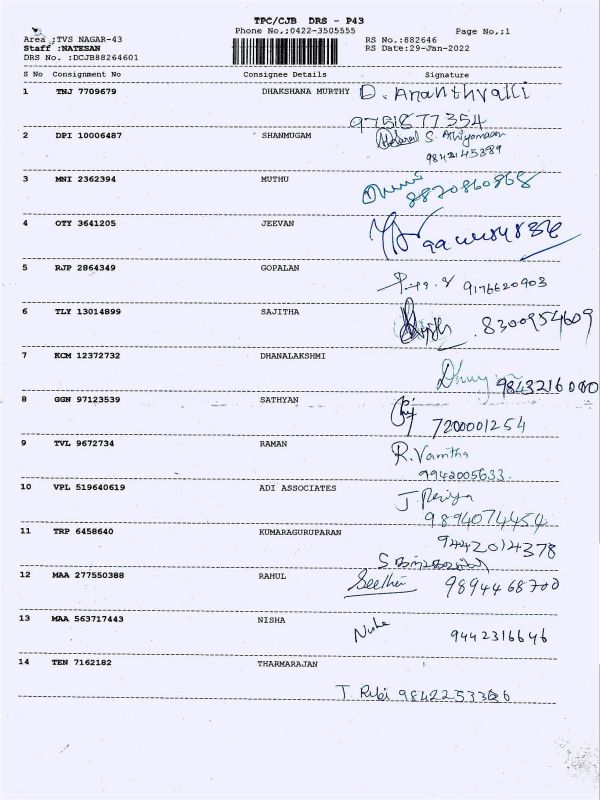 TPC/CJB DRS - P43
Phone No,:0422-3505555 Page No,;1
Area ;TVS NAGAR-43 RS No.:882646
Staff :NATESAN RS Date:29-Jan-2022
DRS No. :DCJB88264601
S No Consignment No Consignee Details Signature
1 TNJ 7709679 DHAKSHANA MURTHY D. Ananthvalli
9751877354
2 DPI 10006487 SHANMUGAM S. Athiyamaan
9842145389
3 MNI 2362394 MUTHU
8870860868
4 OTY 3641205 JEEVAN
5 RJP 2864349 GOPALAN 9176620903
6 TLY 13014899 SAJITHA 8300954609
7 KCM 12372732 DHANALAKSHMI
9843216000
8 GGN 97123539 SATHYAN
7200001254
9 TVL 9672734 RAMAN R. Vanitha
9942005633
10 VPL 519640619 ADI ASSOCIATES J Periya
9894074454
11 TRP 6458640 KUMARAGURUPARAN 9442014378
12 MAA 277550388 RAHUL 9894468700
13 MAA 563717443 NISHA Nisha 9442316646
14 TEN 7162182 THARMARAJAN